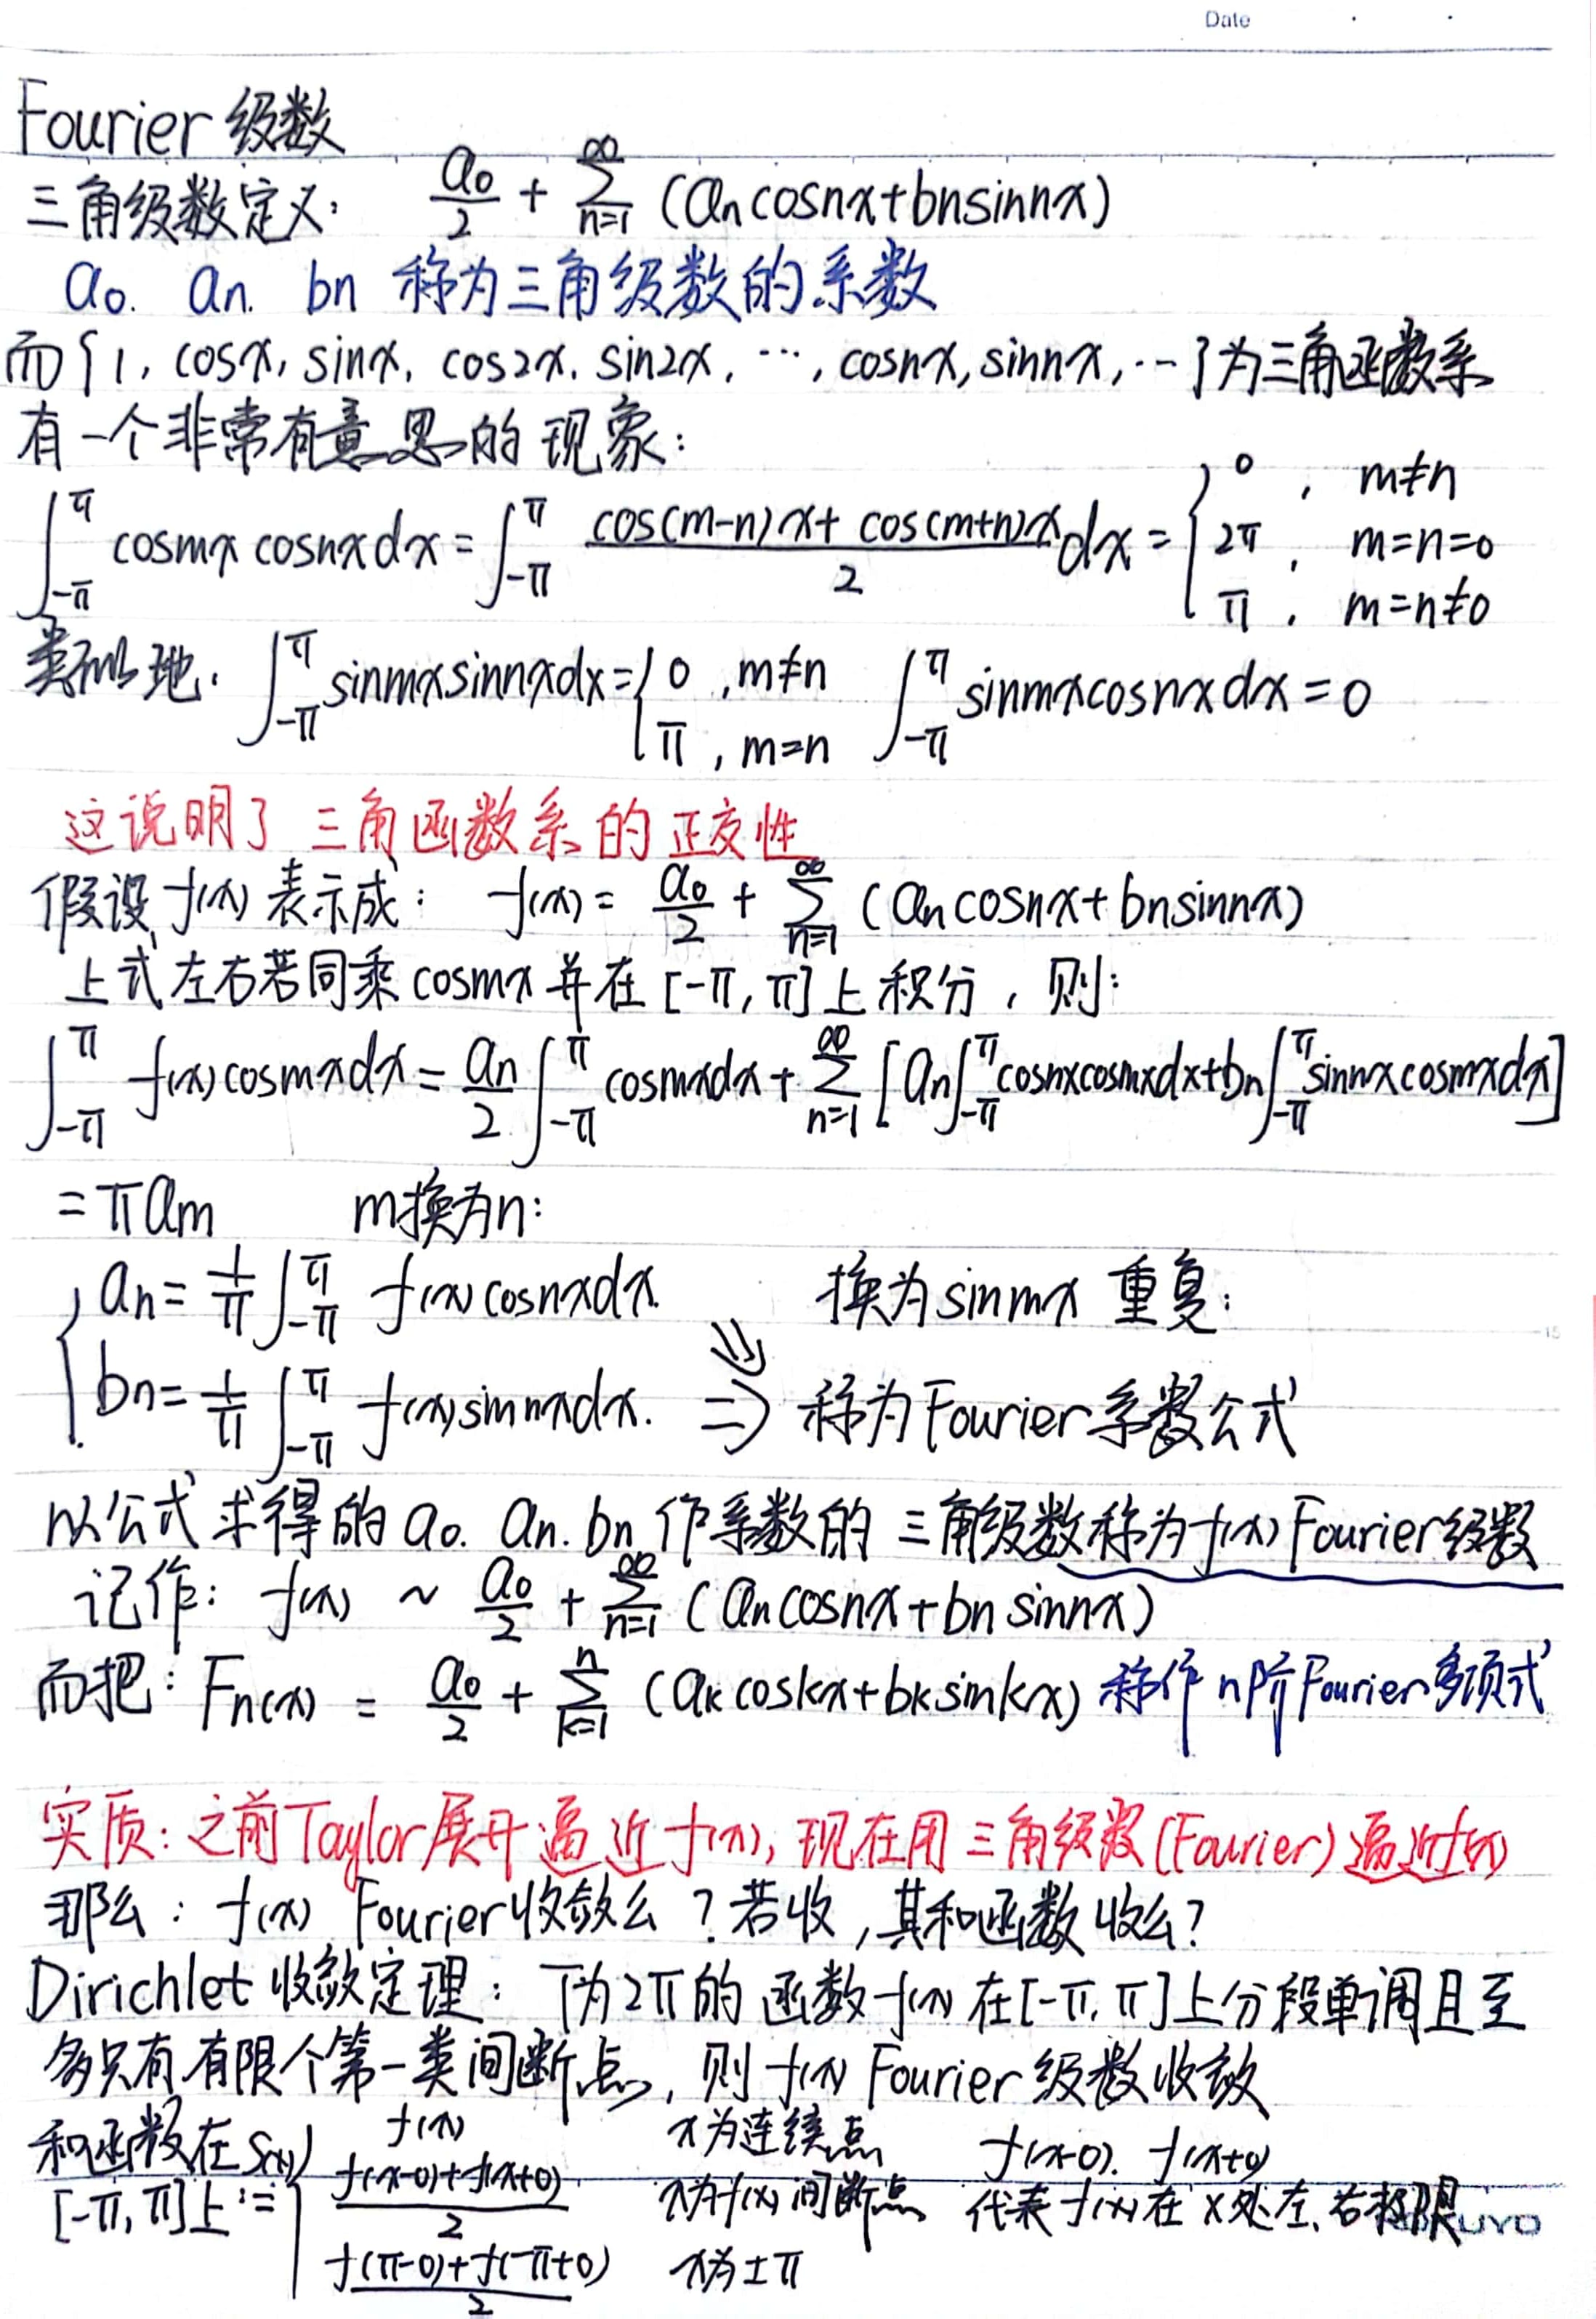 Date
Fourier 级数
三角级数定义: a₀/2 + ∑_{n=1}^{∞} (aₙcosnx+bₙsinnx)
a₀. aₙ. bₙ 称为三角级数的系数
而{1, cosx, sinx, cos2x, sin2x, …, cosnx, sinnx, …}为三角函数系
有一个非常有意思的现象:
∫_{-π}^{π} cosmx cosnx dx = ∫_{-π}^{π} (cos(m-n)x + cos(m+n)x)/2 dx = { 0, m≠n ; 2π, m=n=0 ; π, m=n≠0
类似地. ∫_{-π}^{π} sinmx sinnx dx = { 0, m≠n ; π, m=n ∫_{-π}^{π} sinmx cosnx dx = 0
这说明了三角函数系的正交性
假设f(x)表示成: f(x) = a₀/2 + ∑_{n=1}^{∞} (aₙcosnx+bₙsinnx)
上式左右若同乘cosmx并在[-π, π]上积分, 则:
∫_{-π}^{π} f(x)cosmxdx = aₙ/2 ∫_{-π}^{π} cosmxdx + ∑_{n=1}^{∞} [aₙ∫_{-π}^{π} cosnxcosmxdx + bₙ∫_{-π}^{π} sinnxcosmxdx]
= πaₘ m换为n:
{ aₙ = 1/π ∫_{-π}^{π} f(x)cosnxdx. 换为sinmx 重复:
bₙ = 1/π ∫_{-π}^{π} f(x)sinnxdx. ⇒ 称为Fourier系数公式
以公式求得的a₀. aₙ. bₙ作系数的三角级数称为f(x)Fourier级数
记作: f(x) ~ a₀/2 + ∑_{n=1}^{∞} (aₙcosnx+bₙsinnx)
而把: Fₙ(x) = a₀/2 + ∑_{k=1}^{n} (aₖcoskx+bₖsinkx) 称作n阶Fourier多项式
实质: 之前Taylor展开逼近f(x), 现在用三角级数(Fourier)逼近f(x)
那么: f(x) Fourier收敛么? 若收, 其和函数收么?
Dirichlet收敛定理: T为2π的函数f(x)在[-π, π]上分段单调且至
多只有有限个第一类间断点, 则f(x) Fourier级数收敛
和函数在 S(x) f(x) x为连续点 f(x-0). f(x+0)
[-π, π]上:= { (f(x-0)+f(x+0))/2 x为f(x)间断点 代表f(x)在x处左、右极限
(f(π-0)+f(-π+0))/2 x为±π